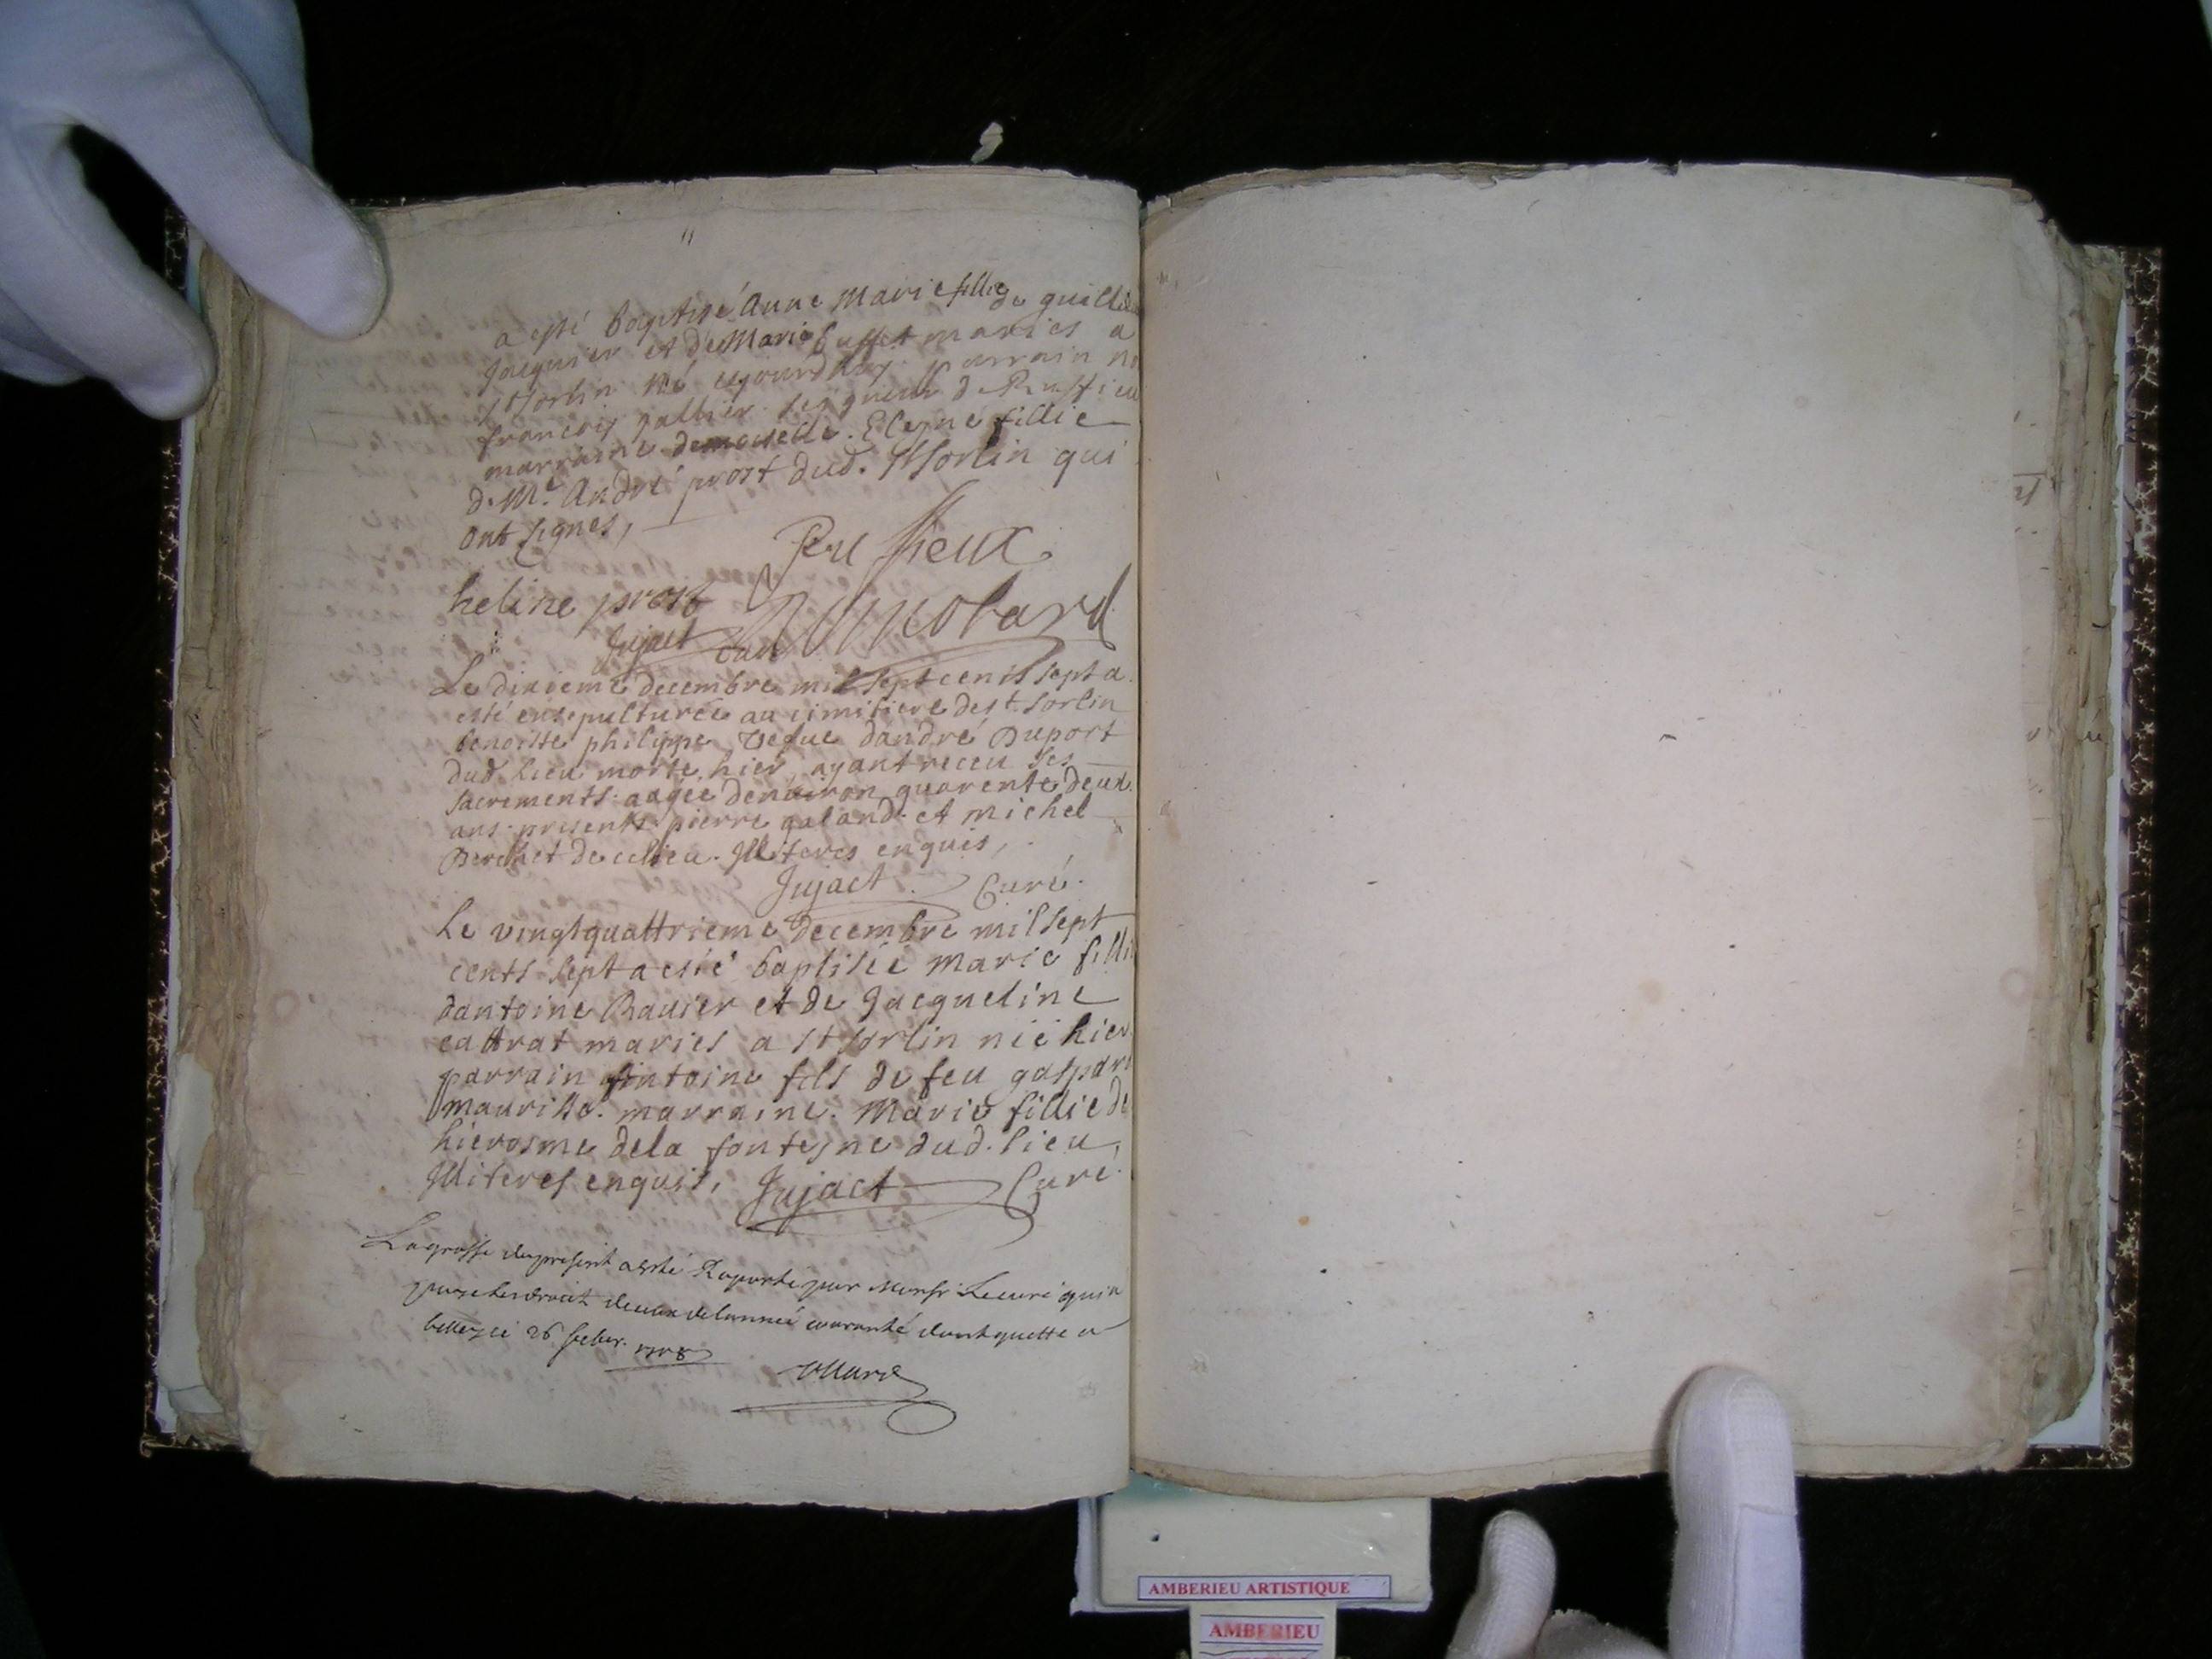 a esté baptisé Anne Marie fillie de guill
Jacquier et de Marie buffet mariés a
St Sorlin né cejourdhuy parrain
francois gallier seigneur de Ruffieu
marraine demoiselle Eleyne fillie
de Mr. André prost dud. St Sorlin qui
ont signes,
Ruffieux
heline prost
Jujact
Le dixieme decembre mil sept cents sept a
esté ensepulturée au cimitiere de st. Sorlin
benoitte philippe vefue dandré Duport
dud. lieu morte hier, ayant receu ses
sacrements aagée denuiron quarente deux
ans presents pierre galand et michel
Berchet de ce lieu. Illiteres enquis,
Jujact Curé.
Le vingtquattrieme decembre mil sept
cents sept a esté baptisée Marie filli
dantoine Bauier et de Jacqueline
cattrat mariés a St Sorlin née hier
parrain Antoine fils de feu gaspard
maurille. marraine. Marie fillie de
hierosme dela fonteyne dud. lieu,
Illiteres enquis, Jujact Curé.
La grosse du present a esté Raporté par Monsr Le curé qui a
payé les droit deceux de lannée courante dont quitte a
belley ce 26 febur. 1708
AMBERIEU ARTISTIQUE
AMBERIEU